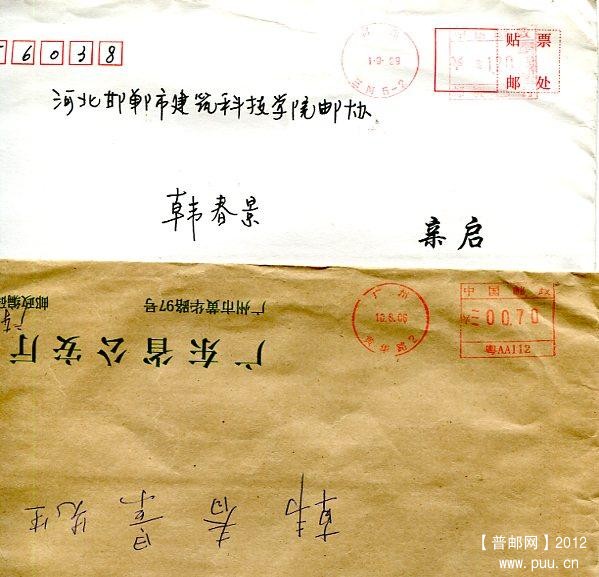 6038
贴 票
邮 处
河北邯郸市建筑科技学院邮协
韩春景
亲启
中国邮政
00.70
粤AA112
广州
10.6.06
黄华路2
广州市黄华路97号
邮政编码
广东省公安厅
韩春景先生
【普邮网】2012
www.puu.cn